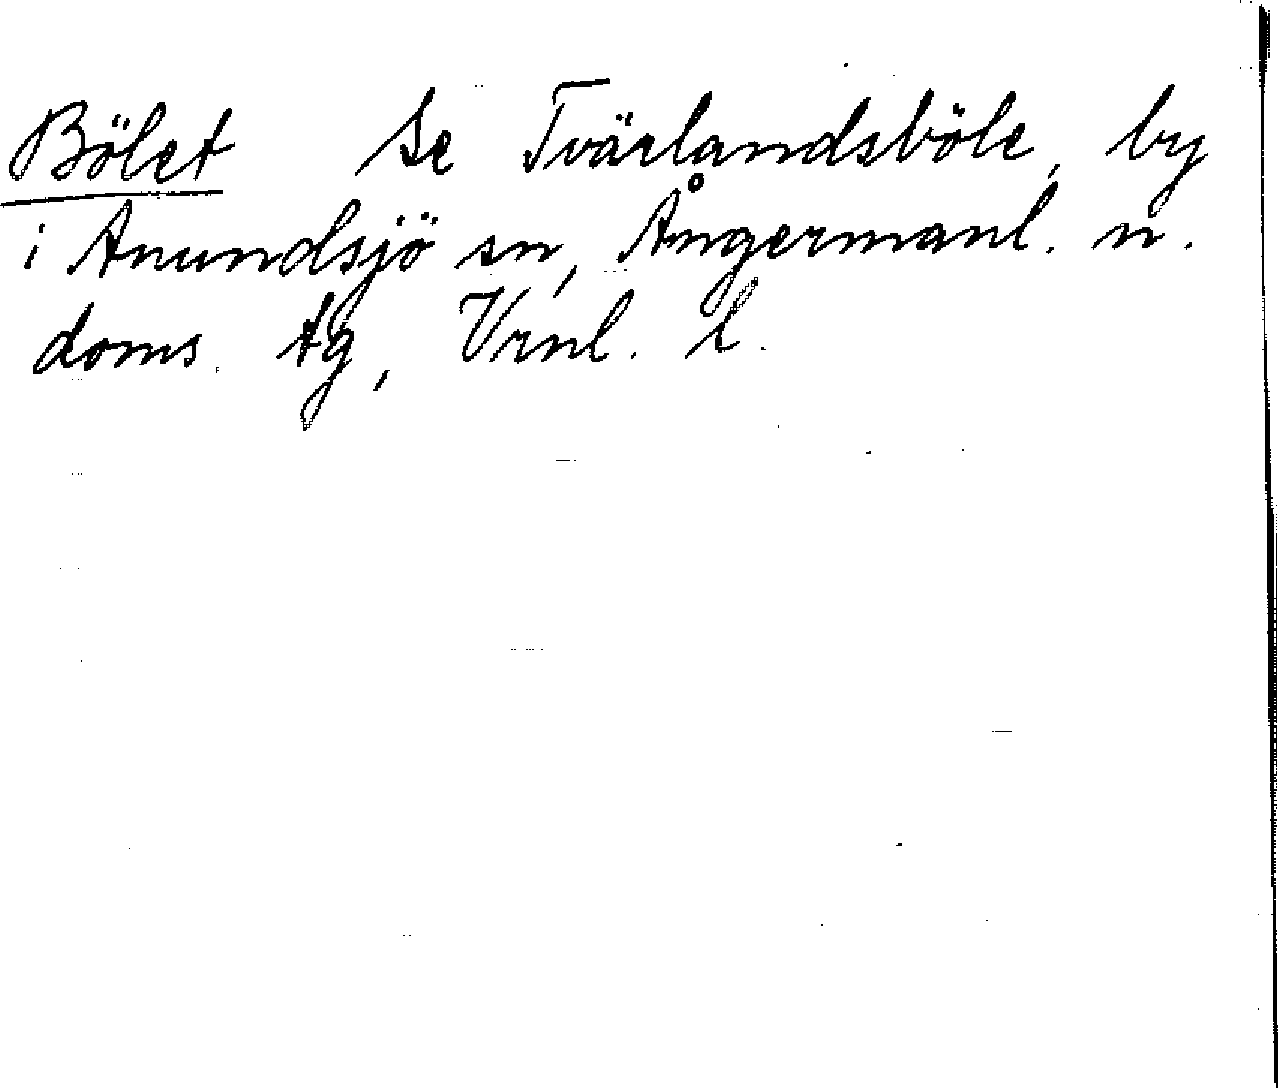 Bölet Se Tvärlandsböle, by
i Anundsjö sn, Ångermanl. n.
doms. tg, Vrnl. l.